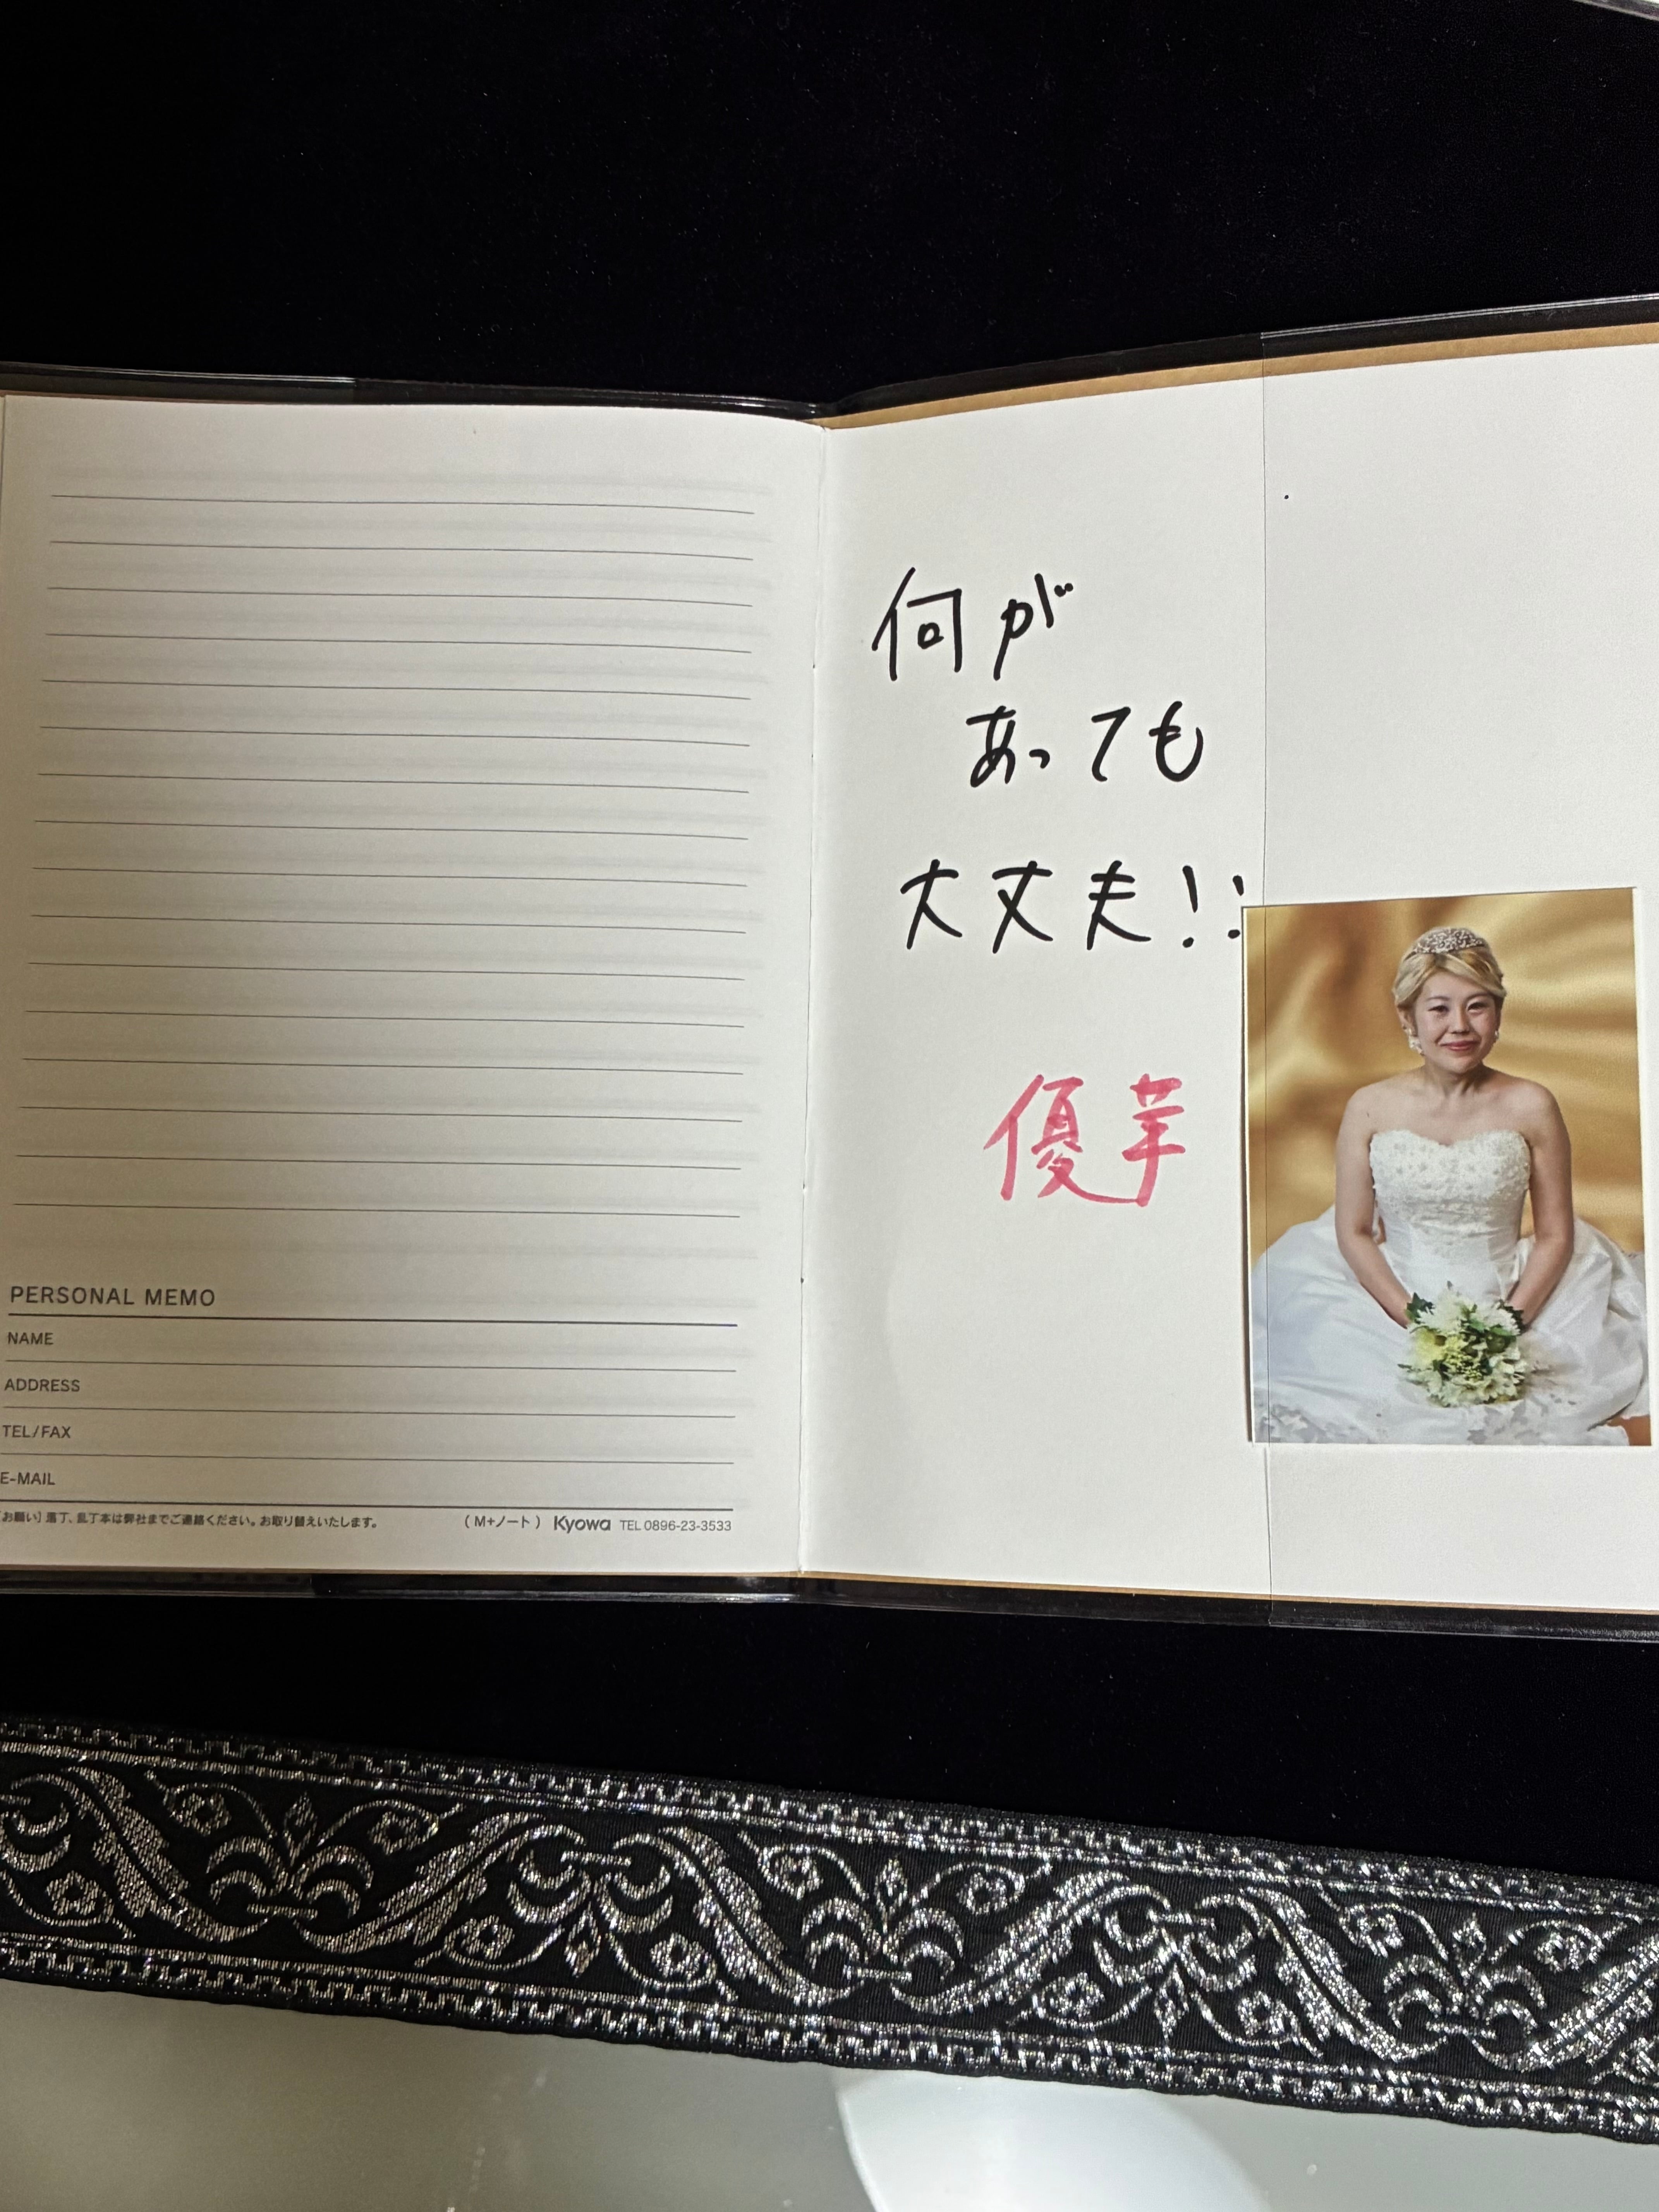 PERSONAL MEMO
NAME
ADDRESS
TEL/FAX
E-MAIL
お願い］落丁、乱丁本は弊社までご連絡ください。お取り替えいたします。
（M+ノート） Kyowa TEL 0896-23-3533
何が
あっても
大丈夫!!
優芽